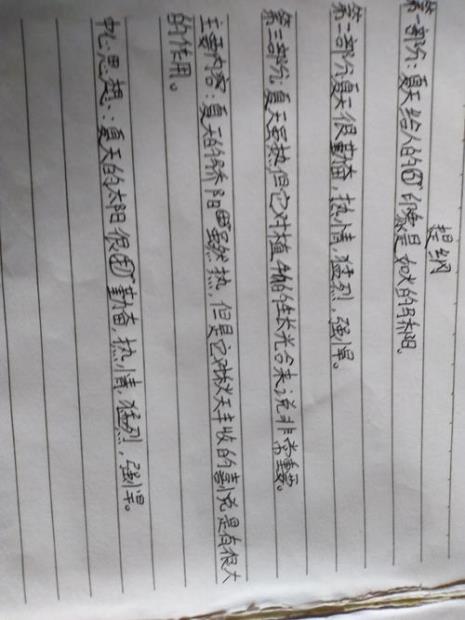 提纲
第一部分:夏天给人的印象是如火的骄阳。
第二部分夏天很勤奋,热情,猛烈,强悍。
第三部分,夏天虽热,但它对植物的生长光合来说非常重要。
主要内容:夏天的骄阳虽然热,但是它对秋天丰收的喜悦是有很大
的作用。
中心思想:夏天的太阳很勤奋,热情,猛烈,强悍。